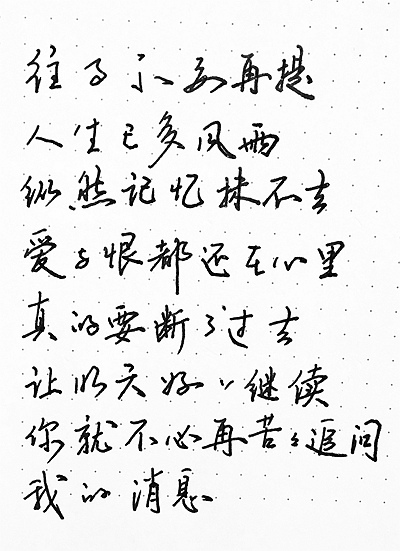 往事不要再提
人生已多风雨
纵然记忆抹不去
爱与恨都还在心里
真的要断了过去
让明天好好继续
你就不必再苦苦追问
我的消息